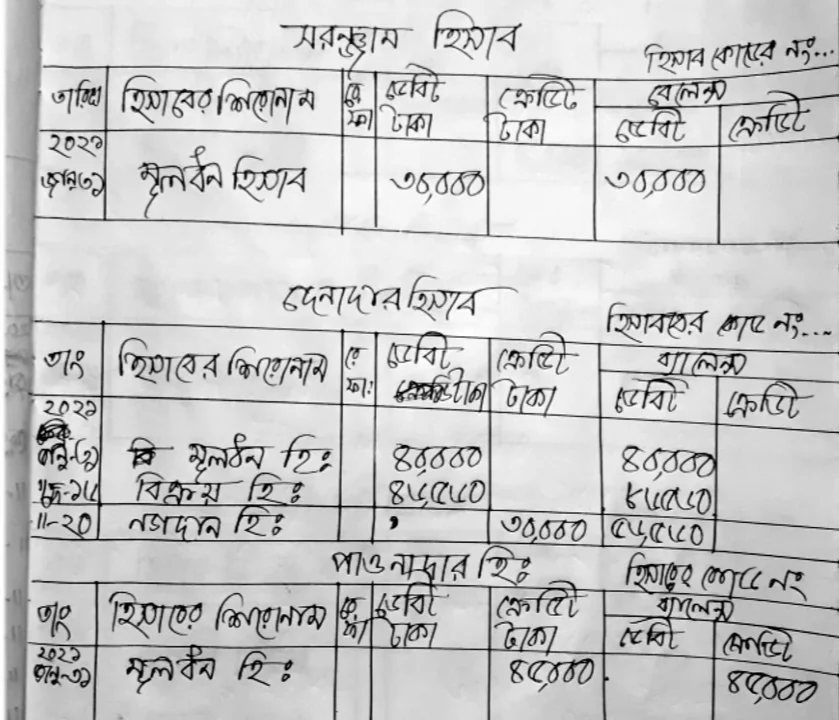 সরঞ্জাম হিসাব
হিসাব কোডের নং...
তারিখ হিসাবের শিরোনাম রে ফা ডেবিট টাকা ক্রেডিট টাকা বেলেন্স
ডেবিট ক্রেডিট
২০২১
জানু৩১ মূলধন হিসাব ৩০,০০০ ৩০,০০০
দেনাদার হিসাব
হিসাবের কোড নং...
তাং হিসাবের শিরোনাম রে ফা: ডেবিট টাকা ক্রেডিট টাকা ব্যালেন্স
ডেবিট ক্রেডিট
২০২১
জানু-৩১ মূলধন হিঃ ৪০,০০০ ৪০,০০০
বিক্রয় হিঃ
11-20 নগদান হিঃ ৩০,০০০
পাওনাদার হিঃ
হিসাবের কোড নং
তাং হিসাবের শিরোনাম রে ফা ডেবিট টাকা ক্রেডিট টাকা ব্যালেন্স
ডেবিট ক্রেডিট
২০২১
জানু-৩১ মূলধন হিঃ ৪৫,০০০ ৪৫,০০০